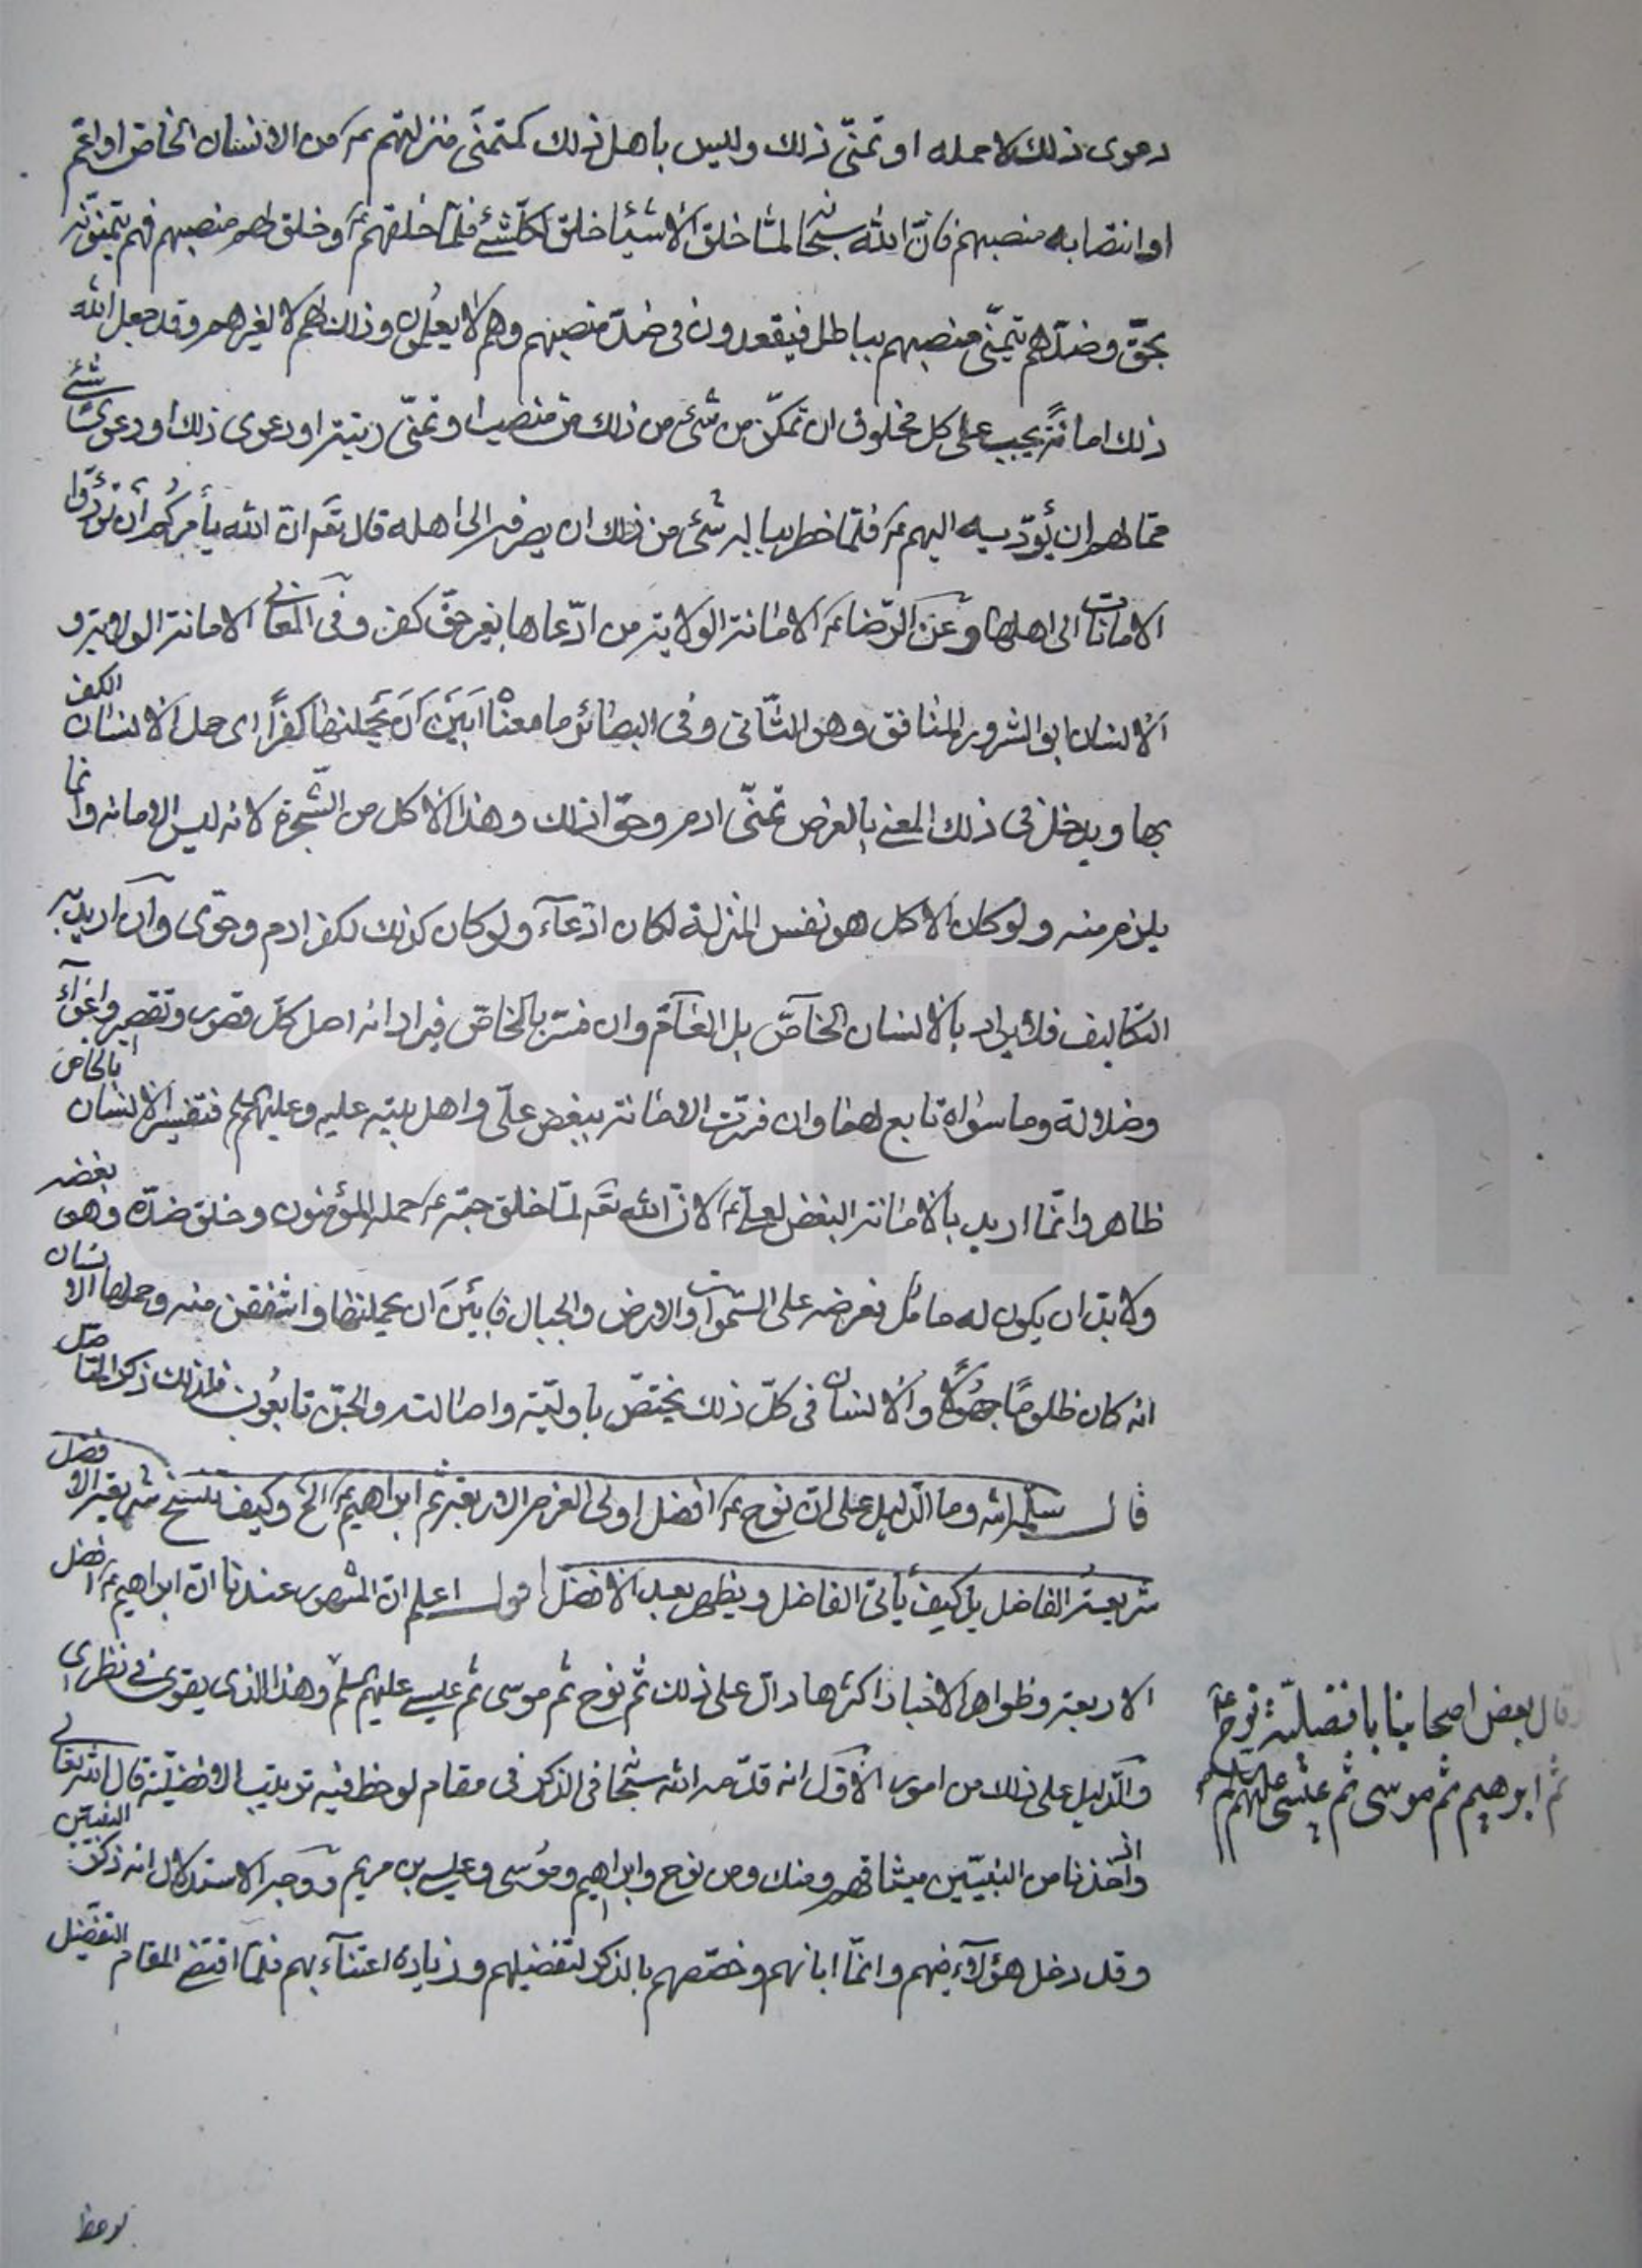 دعوى ذلك لا حمله او تمنّى ذلك وليس باهل ذلك كمتمنّى منزلتهم عم من الانسان الخاص او اعم
او انتصابه منصبهم فانّ الله سبحانه لمّا خلق الاشياء خلق لكل شئ فلمّا خلقهم عم وخلق لهم منصبهم فهم يتمنّونه
بحقّ وضدّهم يتمنّى منصبهم بباطل فيقعدون في ضدّ منصبهم وهم لا يعلمون وذلك لهم لا لغيرهم وقد جعل الله
ذلك امانة يجب على كل مخلوق ان تمكّن من شئ من ذلك من منصب او تمنّى رتبة او دعوى ذلك او دعوى شئ
ممّا لهم ان يؤدّيه اليهم عم فلمّا خطر بباله شئ من ذلك ان يصرفه الى اهله قال تعم ان الله يأمركم أن تؤدّوا
الامانات الى اهلها وعن الرّضا عم الامانة الولاية من ادّعاها بغير حقّ كفر وفى المعاني الامانة الولاية و
الانسان ابو الشرور المنافق وهو الثّانى وفى البصائر ما معناه ابين ان يحملنها كفراً اى حمل الانسان الكفر
بها ويدخل في ذلك المعنى بالعرض تمنّى ادم وحوّا ذلك وهذا الاكل من الشّجرة لانه ليس الامانه وانما
يلزم منه ولو كان الاكل هو نفس المنزلة لكان ادّعآء ولو كان كذلك لكفر ادم وحوّى وان اريد به
التكاليف فلا يراد بالانسان الخاصّ بل العآم وان فسّر بالخاصّ فيراد انه اصل كلّ قصور وتقصير واغوآء
وضلالة وما سواه تابع لهما وان فسّرت الامانة ببغض علىّ واهل بيته عليه وعليهم السلم فتفسير الانسان بالخاص
ظاهر وانّما اريد بالامانة البغض لعلىّ عم لانّ الله تعم لمّا خلق حبّه عم حمله المؤمنون وخلق ضدّه وهو بغضه
ولا بدّ ان يكون له حامل فعرضه على السّموات والارض والجبال فابين ان يحملنها واشفقن منه وحملها الانسان
انه كان ظلومًا جهولًا والانسان في كلّ ذلك يختصّ باوليّته واصالته والجنّ تابعون فلذلك ذكر المقاصل
قال سلّمه الله وما الدّليل على انّ نوح عم افضل اولى العزم الاربعة ثم ابراهيم عم الخ وكيف تنسخ شريعة الافضل
شريعة الفاضل بل كيف يأتى الفاضل ويظهر بعد الافضل اقول اعلم انّ المشهور عندنا انّ ابراهيم عم افضل
الاربعة وظواهر الاخبار اكثرها دالّ على ذلك ثم نوح ثم موسى ثم عيسى عليهم السلم وهذا الذى يقوى في نظرى
قال بعض اصحابنا بافضليّة نوح عم
ثم ابرهيم ثم موسى ثم عيسى عليهم السلم
والدّليل على ذلك من امور الاوّل انه قدّمه الله سبحانه في الذكر في مقام لوحظ فيه ترتيب الافضليّة قال الله تعالى
واذ اخذنا من النبيّين ميثاقهم ومنك ومن نوح وابراهيم وموسى وعيسى بن مريم ووجه الاستدلال انه ذكر النبيّين
وقد دخل هؤلآء فيهم وانمّا ابانهم وخصّصهم بالذكر لتفضيلهم وزيادة اعتنآء بهم فلمّا اقتضى المقام التفضيل
لوحظ